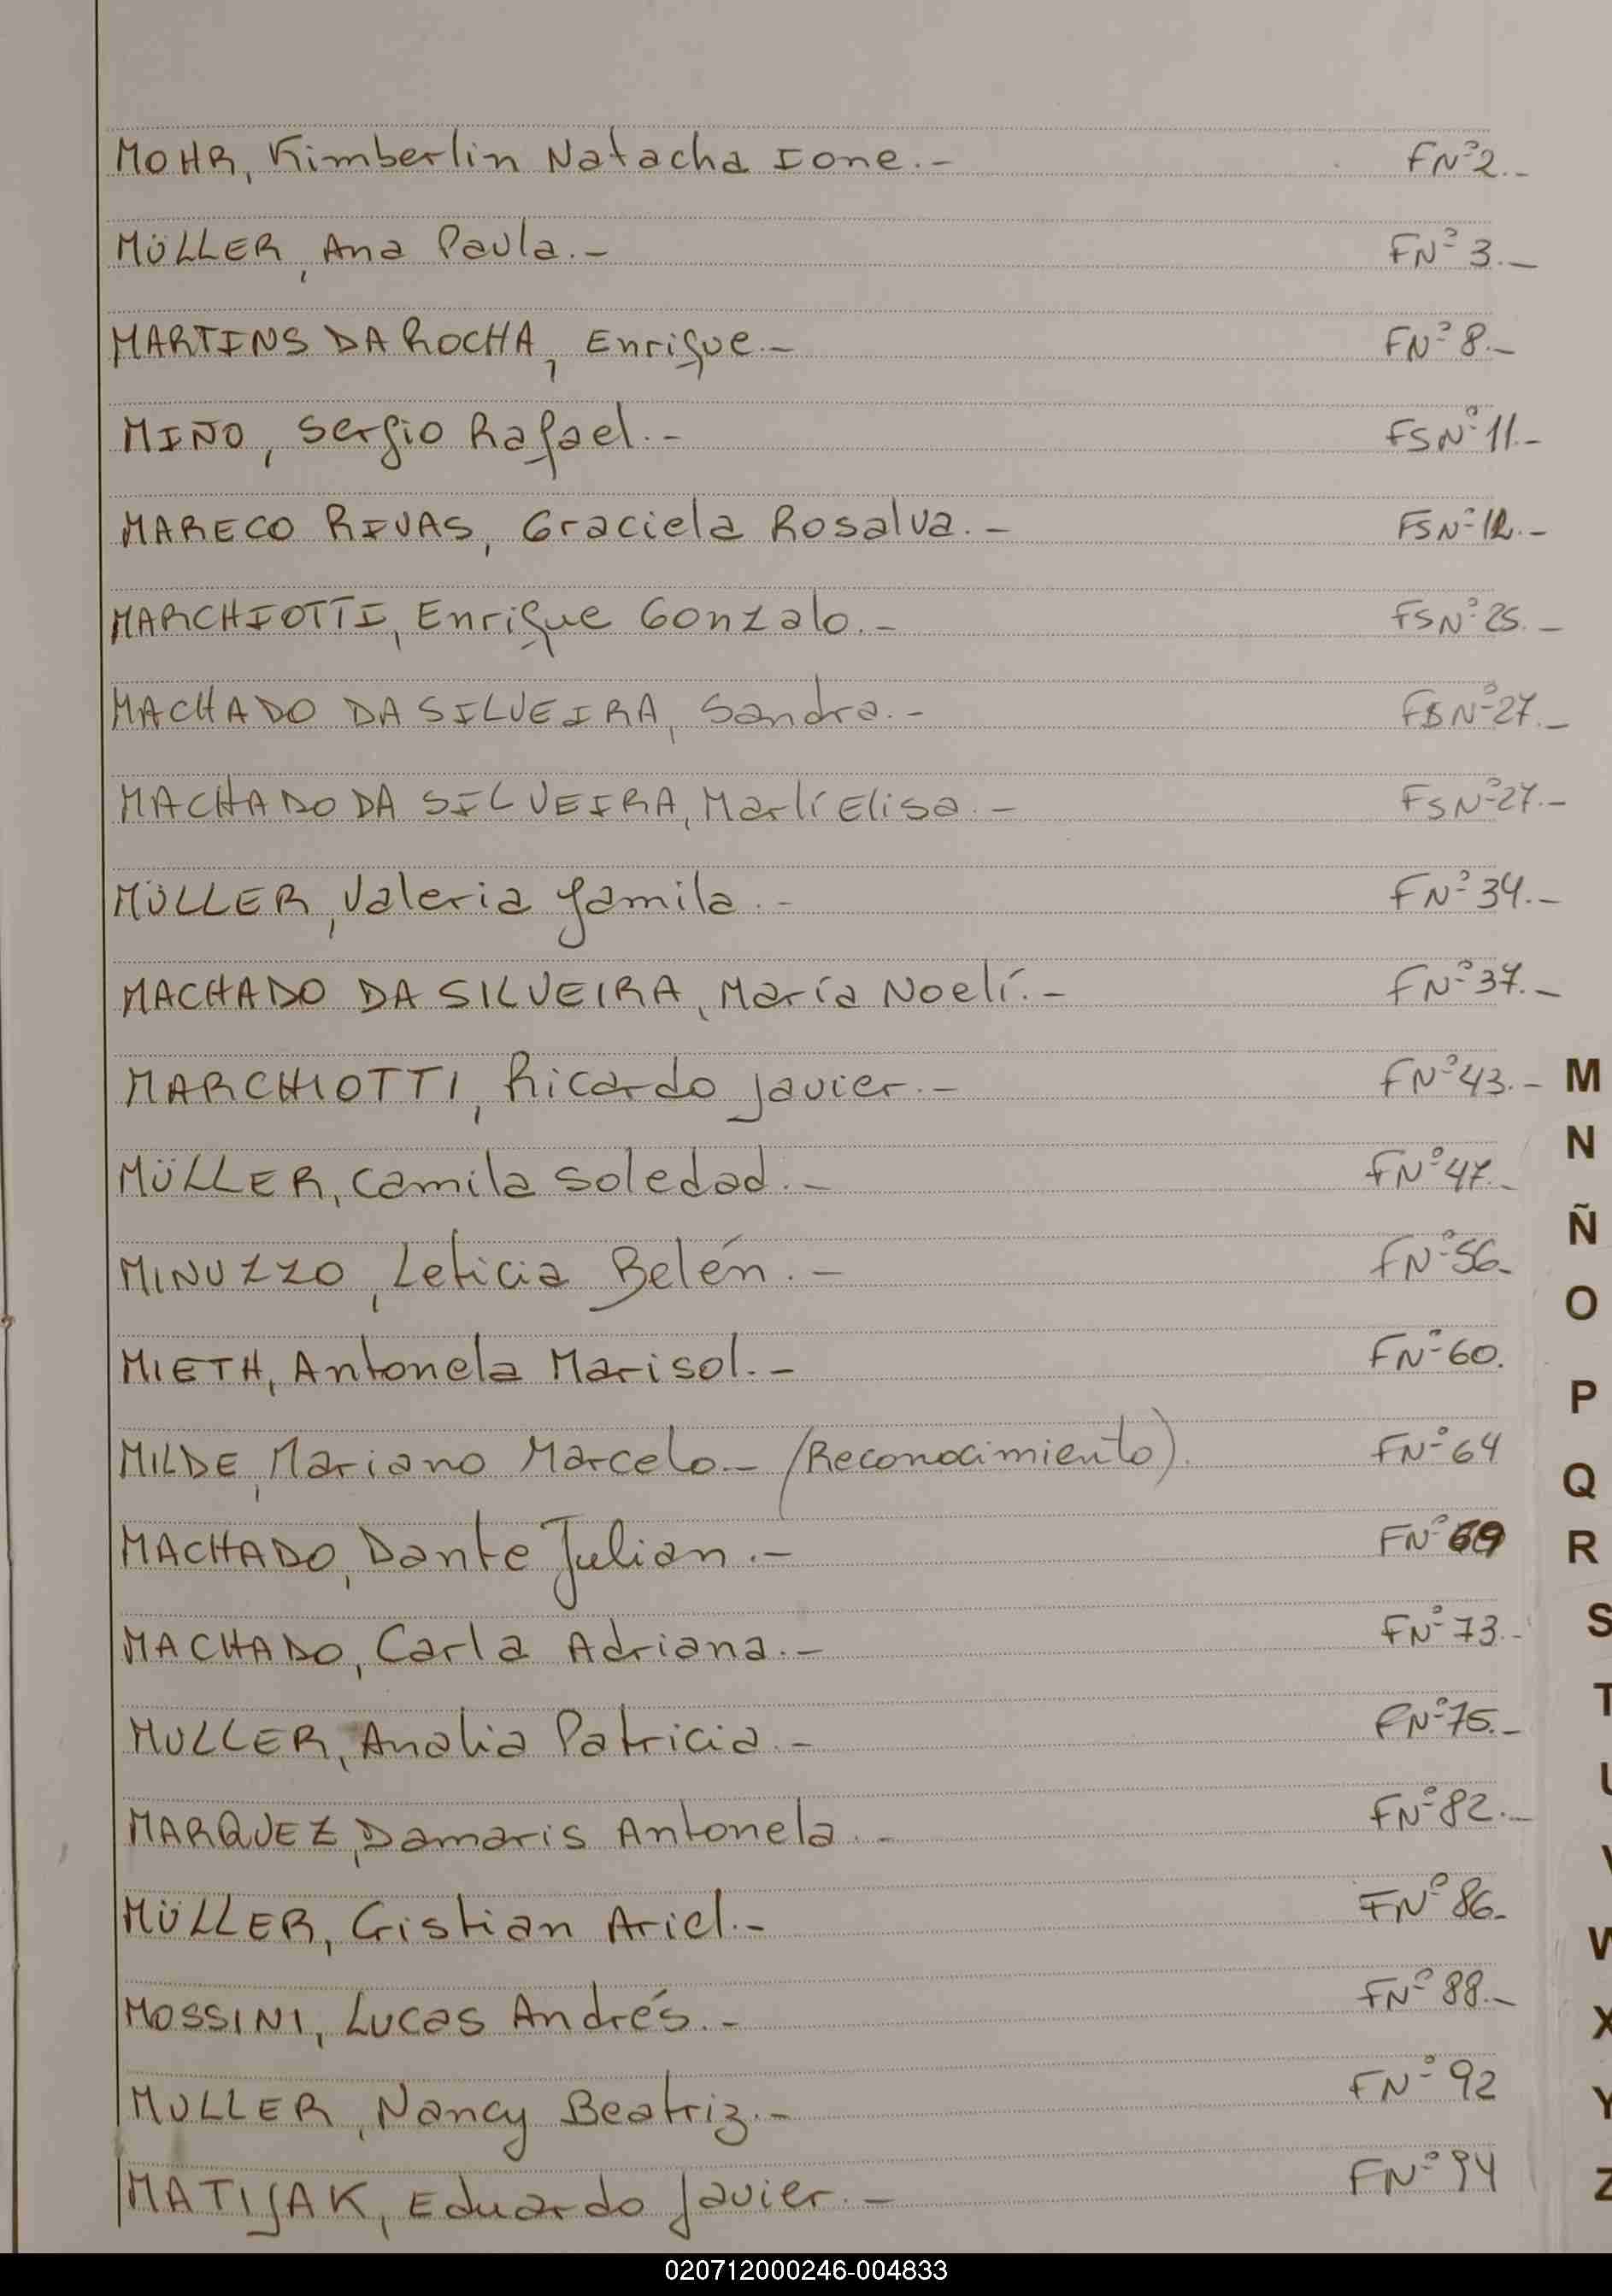 MOHR, Kimberlin Natacha Ione.- FNº2.-
MÜLLER, Ana Paula.- FNº 3.-
MARTINS DA ROCHA, Enrique.- FNº 8.-
MIÑO, Sergio Rafael.- FSNº11.-
MARECO RIVAS, Graciela Rosalva.- FSNº12.-
MARCHIOTTI, Enrique Gonzalo.- FSNº25.-
MACHADO DA SILVEIRA, Sandra.- FSNº27.-
MACHADO DA SILVEIRA, Marlí Elisa.- FSNº27.-
MÜLLER, Valeria Yamila.- FNº34.-
MACHADO DA SILVEIRA, María Noelí.- FNº37.-
MARCHIOTTI, Ricardo Javier.- FNº43.-
M
MÜLLER, Camila Soledad.- FNº47.-
N
Ñ
MINUZZO, Leticia Belén.- FNº56.-
O
MIETH, Antonela Marisol.- FNº60.
P
MILDE, Mariano Marcelo.- (Reconocimiento). FNº64
Q
MACHADO, Dante Julian.- FNº69
R
MACHADO, Carla Adriana.- FNº73.-
S
T
MULLER, Analia Patricia.- FNº75.-
U
MARQUEZ, Damaris Antonela.- FNº82.-
V
MÜLLER, Cristian Ariel.- FNº86.-
W
MOSSINI, Lucas Andrés.- FNº88.-
X
MULLER, Nancy Beatriz.- FNº92
Y
MATIJAK, Eduardo Javier.- FNº94
Z
020712000246-004833